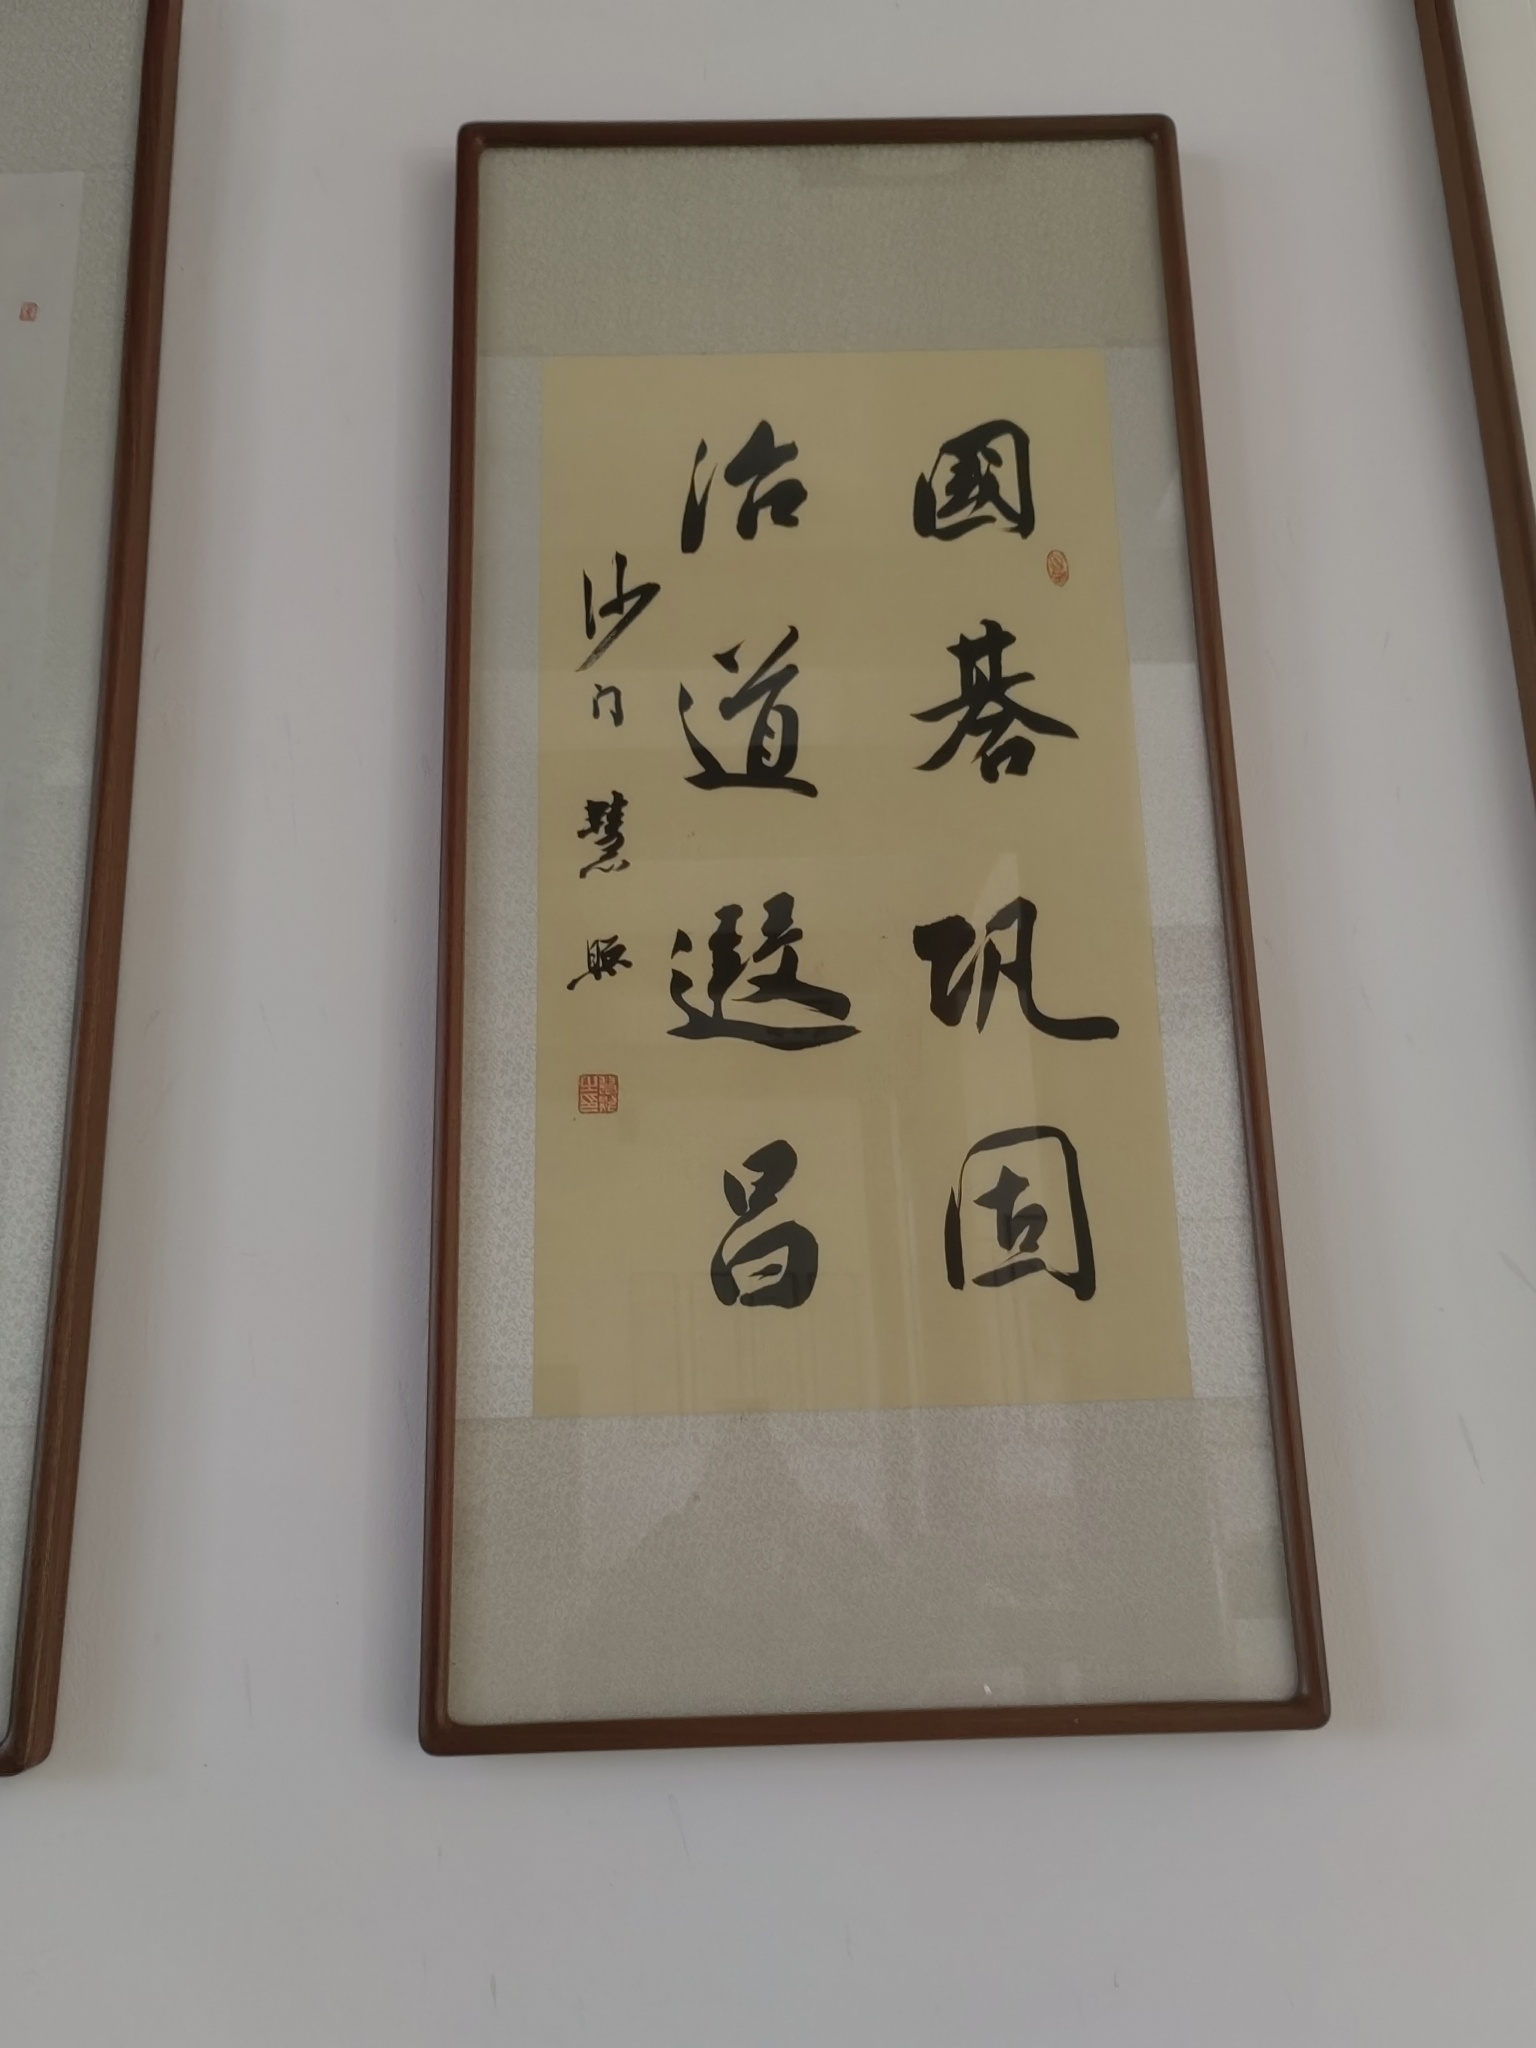 國碁巩固
治道遐昌
沙门慧照